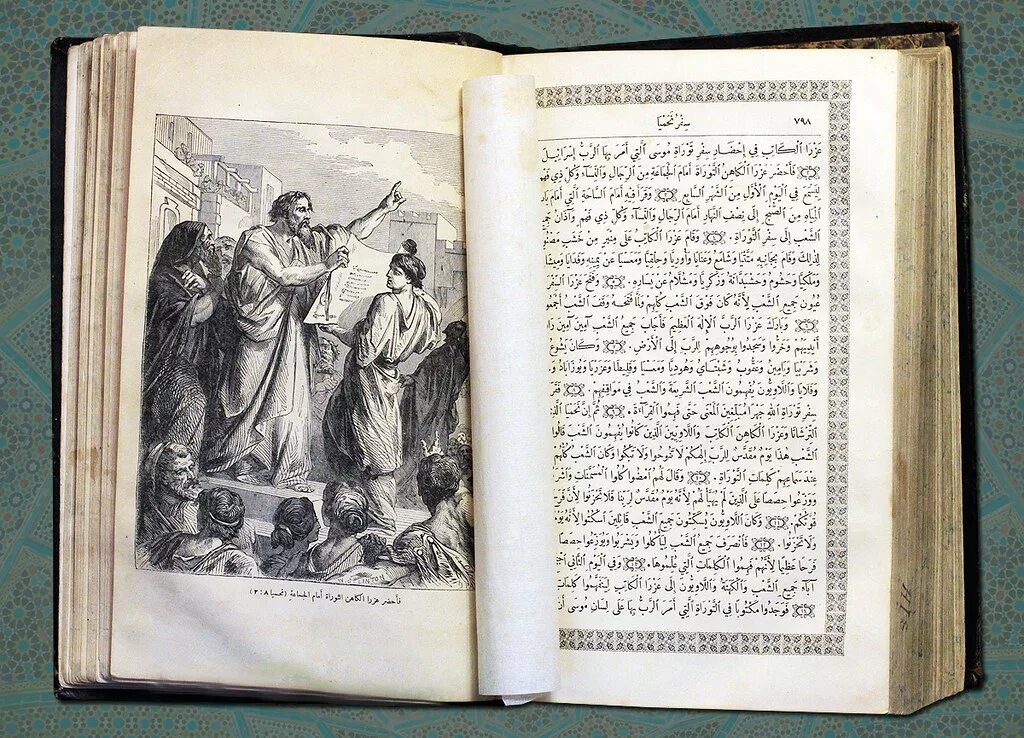 سِفْرُ نَحَمْيَا
٧٩٨
عَزْرَا ٱلْكَاتِبِ فِي إِحْضَارِ سِفْرِ تَوْرَاةِ مُوسَى ٱلَّتِي أَمَرَ بِهَا ٱلرَّبُّ إِسْرَائِيلَ
فَأَحْضَرَ عَزْرَا ٱلْكَاهِنُ ٱلتَّوْرَاةَ أَمَامَ ٱلْجَمَاعَةِ مِنَ ٱلرِّجَالِ وَٱلنِّسَاءِ وَكُلِّ ذِي فَهْمٍ
فِي ٱلْيَوْمِ ٱلْأَوَّلِ مِنَ ٱلشَّهْرِ ٱلسَّابِعِ. وَقَرَأَ فِيهِ أَمَامَ ٱلسَّاحَةِ ٱلَّتِي أَمَامَ
ٱلْمِيَاهِ مِنَ ٱلصُّبْحِ إِلَى نِصْفِ ٱلنَّهَارِ أَمَامَ ٱلرِّجَالِ وَٱلنِّسَاءِ وَكُلِّ ذِي فَهْمٍ وَآذَانُ
ٱلشَّعْبِ إِلَى سِفْرِ ٱلتَّوْرَاةِ. وَقَامَ عَزْرَا ٱلْكَاتِبُ عَلَى مِنْبَرٍ مِنْ خَشَبٍ
لِذٰلِكَ وَقَامَ بِجَانِبِهِ مَتَّتْيَا وَشَامَعُ وَعَنَايَا وَأُورِيَّا وَحِلْقِيَّا وَمَعَسْيَا عَنْ يَمِينِهِ وَفَدَايَا
وَمَلْكِيَّا وَحَشُومُ وَحَشْبَدَّانَةُ وَزَكَرِيَّا وَمَشُلَّامُ عَنْ يَسَارِهِ. وَفَتَحَ عَزْرَا ٱلسِّفْرَ
عُيُونِ جَمِيعِ ٱلشَّعْبِ لِأَنَّهُ كَانَ فَوْقَ ٱلشَّعْبِ كُلِّهِمْ وَلَمَّا فَتَحَهُ وَقَفَ ٱلشَّعْبُ
وَبَارَكَ عَزْرَا ٱلرَّبَّ ٱلْإِلٰهَ ٱلْعَظِيمَ فَأَجَابَ جَمِيعُ ٱلشَّعْبِ آمِينَ آمِينَ
أَيْدِيَهُمْ وَخَرُّوا وَسَجَدُوا بِوُجُوهِهِمْ لِلرَّبِّ إِلَى ٱلْأَرْضِ. وَكَانَ يَشُوعُ
وَشَرَبْيَا وَيَامِينُ وَعَقُّوبُ وَشَبْتَايُ وَهُودِيَّا وَمَعَسْيَا وَقَلِيطَا وَعَزَرْيَا وَيُوزَابَادُ
وَفَلَايَا وَٱللَّاوِيُّونَ يُفَهِّمُونَ ٱلشَّعْبَ ٱلشَّرِيعَةَ وَٱلشَّعْبُ فِي مَوَاقِفِهِمْ.
سِفْرِ تَوْرَاةِ ٱللهِ جَهْرًا مُبَلِّغِينَ ٱلْمَعْنَى حَتَّى فَهِمُوا ٱلْقِرَاءَةَ. ثُمَّ إِنَّ نَحَمْيَا
ٱلتَّرْشَاتَا وَعَزْرَا ٱلْكَاهِنَ ٱلْكَاتِبَ وَٱللَّاوِيِّينَ ٱلَّذِينَ كَانُوا يُفَهِّمُونَ ٱلشَّعْبَ قَالُوا
ٱلشَّعْبِ هٰذَا يَوْمٌ مُقَدَّسٌ لِلرَّبِّ إِلٰهِكُمْ لَا تَنُوحُوا وَلَا تَبْكُوا وَكَانَ ٱلشَّعْبُ كُلُّهُمْ
عِنْدَ سَمَاعِهِمْ كَلِمَاتِ ٱلتَّوْرَاةِ. وَقَالَ لَهُمُ ٱمْضُوا كُلُوا ٱلْمُسَمَّنَاتِ
وَوَزِّعُوا حِصَصًا عَلَى ٱلَّذِينَ لَمْ يُهَيَّأْ لَهُمْ لِأَنَّهُ يَوْمٌ مُقَدَّسٌ لِرَبِّنَا فَلَا تَحْزَنُوا لِأَنَّ
قُوَّتُكُمْ. وَكَانَ ٱللَّاوِيُّونَ يُسَكِّتُونَ جَمِيعَ ٱلشَّعْبِ قَائِلِينَ ٱسْكُتُوا لِأَنَّهُ
وَلَا تَحْزَنُوا. فَٱنْصَرَفَ جَمِيعُ ٱلشَّعْبِ لِيَأْكُلُوا وَيَشْرَبُوا وَيُوَزِّعُوا حِصَصًا
فَرَحًا عَظِيمًا لِأَنَّهُمْ فَهِمُوا ٱلْكَلِمَاتِ ٱلَّتِي عُلِّمُوهَا. وَفِي ٱلْيَوْمِ ٱلثَّانِي
آبَاءِ جَمِيعِ ٱلشَّعْبِ وَٱلْكَهَنَةُ وَٱللَّاوِيُّونَ إِلَى عَزْرَا ٱلْكَاتِبِ لِيَتَفَهَّمُوا كَلِمَاتِ
فَوَجَدُوا مَكْتُوبًا فِي ٱلتَّوْرَاةِ ٱلَّتِي أَمَرَ ٱلرَّبُّ بِهَا عَلَى لِسَانِ مُوسَى أَنَّ
فأحضر عزرا الكاهن التوراة أمام الجماعة (نحميا ٨ : ٢)